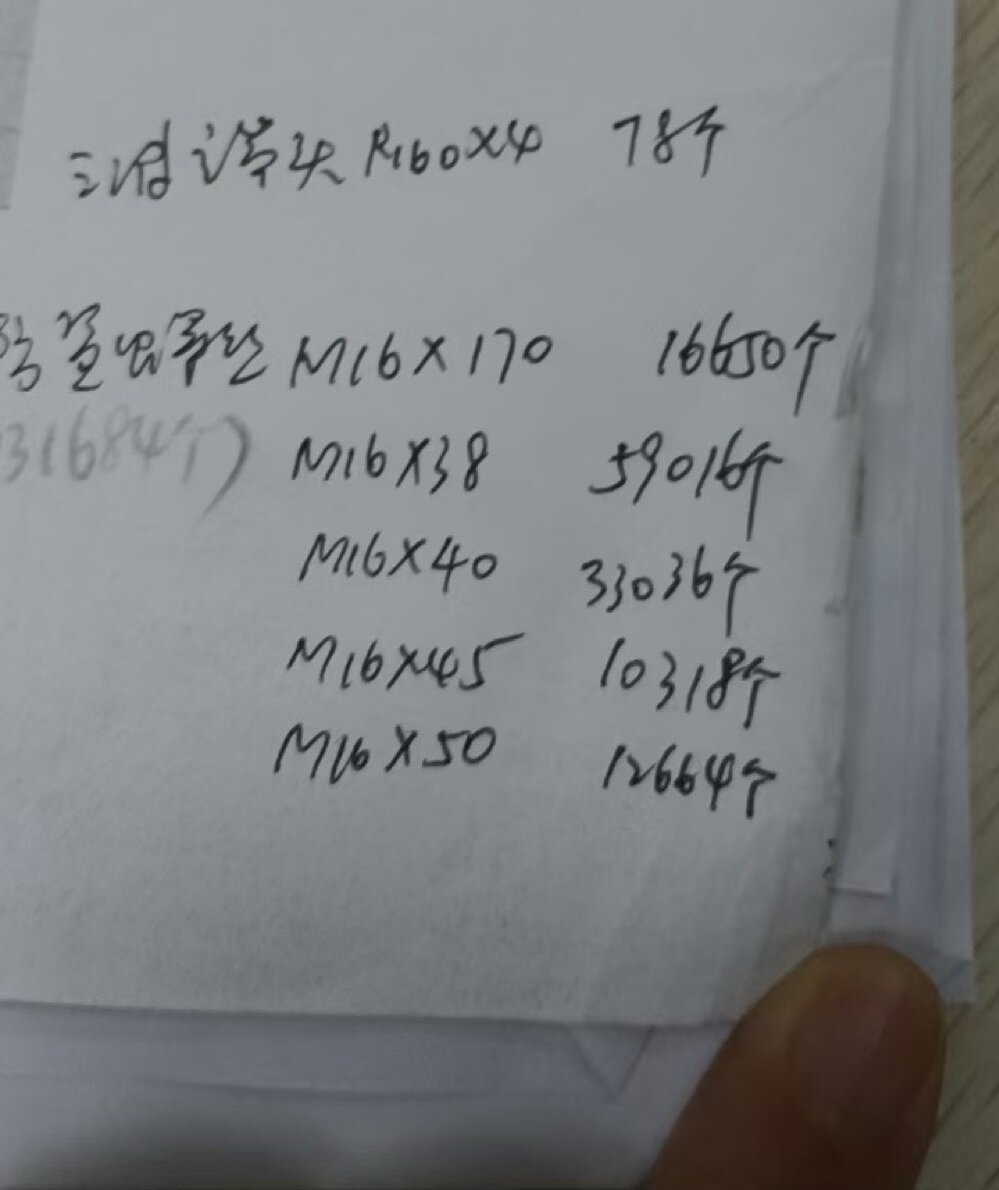 三通弯头 R160X4 78个
M16X170 16650个
31684个) M16X38 59016个
M16X40 33036个
M16X45 10318个
M16X50 12664个